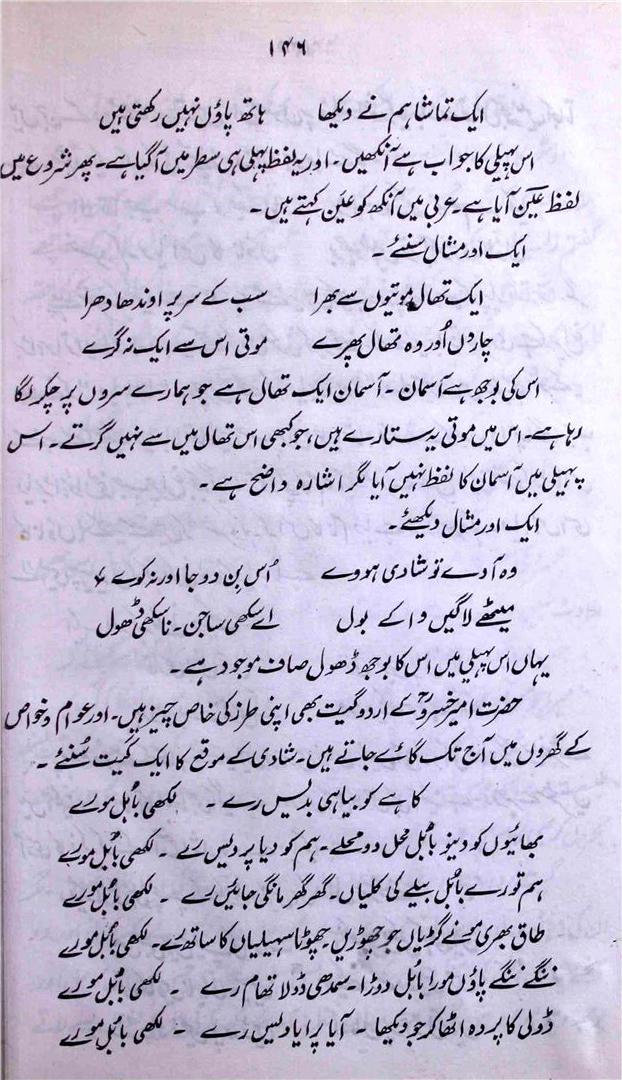 ۱۴۶
ایک تماشا ہم نے دیکھا ہاتھ پاؤں نہیں رکھتی ہیں
اس پہیلی کا جواب ہے آنکھیں۔ اور یہ لفظ پہلی ہی سطر میں آگیا ہے۔ پھر شروع میں
لفظ عَین آیا ہے۔ عربی میں آنکھ کو عَین کہتے ہیں۔
ایک اور مثال سُنئے۔
ایک تھال موتیوں سے بھرا سب کے سر پر اوندھا دھرا
چاروں اُور وہ تھال پھرے موتی اس سے ایک نہ گرے
اس کی بوجھ ہے آسمان۔ آسمان ایک تھال ہے جو ہمارے سروں پر چکر لگا
رہا ہے۔ اس میں موتی یہ ستارے ہیں، جو کبھی اس تھال میں سے نہیں گرتے۔ اس
پہیلی میں آسمان کا لفظ نہیں آیا مگر اشارہ واضح ہے۔
ایک اور مثال دیکھئے۔
وہ آوے تو شادی ہووے اُس بِن دوجا اور نہ کوے
میٹھے لاگیں وا کے بول اے سکھی ساجن۔ نا سکھی ڈھول
یہاں اس پہیلی میں اس کا بوجھ ڈھول صاف موجود ہے۔
حضرت امیر خسروؒ کے اردو گیت بھی اپنی طرز کی خاص چیز ہیں۔ اور عوام و خواص
کے گھروں میں آج تک گائے جاتے ہیں۔ شادی کے موقع کا ایک گیت سُنئے۔
کاہے کو بیاہی بدیس رے۔ لکھی بابُل مورے
بھائیوں کو دینو بابُل محل دو محلے۔ ہم کو دیا پردیس رے۔ لکھی بابُل مورے
ہم تو رے بابُل بیلے کی کلیاں۔ گھر گھر مانگی جائیں رے۔ لکھی بابُل مورے
طاق بھری مونے گڑیاں جو چھوڑیں۔ چھوٹا سہیلیاں کا ساتھ رے۔ لکھی بابُل مورے
ننگے ننگے پاؤں مورا بابُل دوڑا۔ سمدھی ڈولا تھام رے۔ لکھی بابُل مورے
ڈولی کا پردہ اٹھا کر جو دیکھا۔ آیا پرایا دیس رے۔ لکھی بابُل مورے